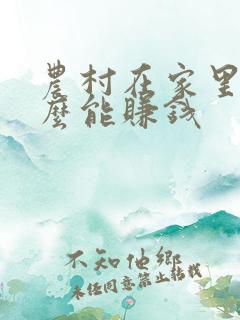 農村在家里
麼能賺钱
不知他鄉
未经同意禁止转载